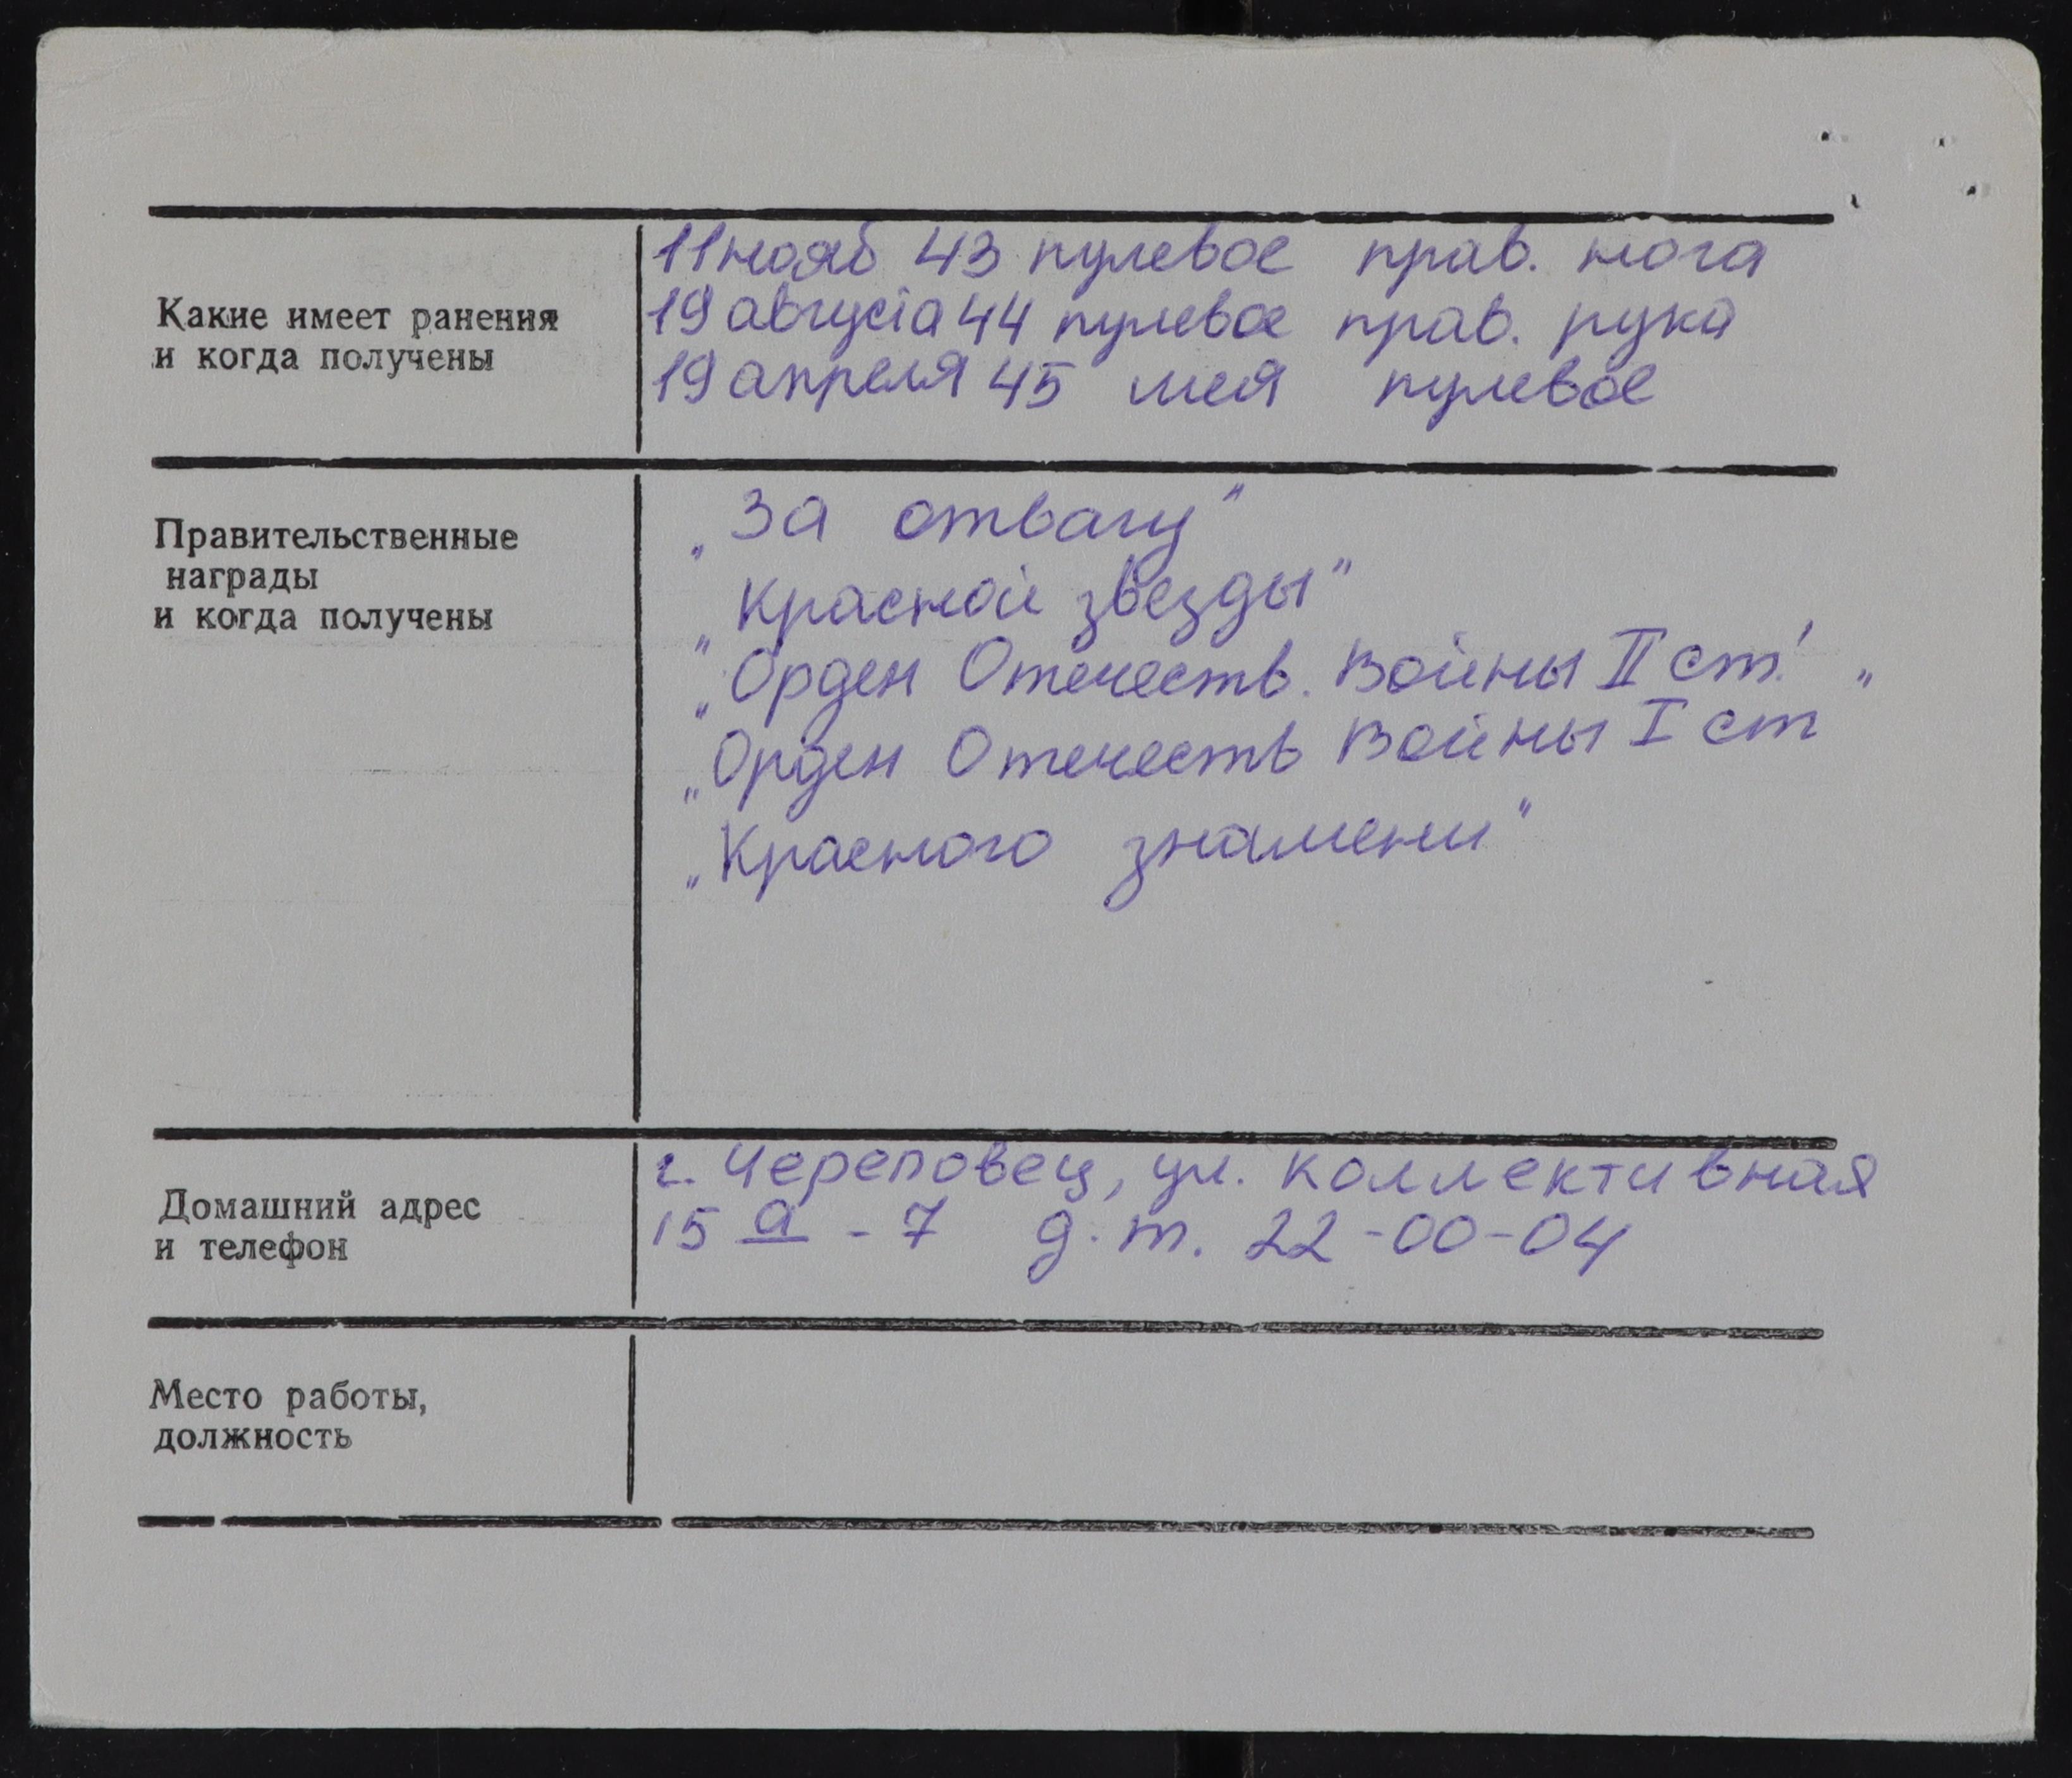 Какие имеет ранения
и когда получены
11 нояб 43 пулевое прав. нога
19 августа 44 пулевое прав. рука
19 апреля 45 шея пулевое
Правительственные
награды
и когда получены
„За отвагу"
„Красной звезды"
„Орден Отечеств. Войны II ст."
„Орден Отечеств Войны I ст"
„Красного знамени"
Домашний адрес
и телефон
г. Череповец, ул. Коллективная
15 а - 7 д. т. 22-00-04
Место работы,
должность